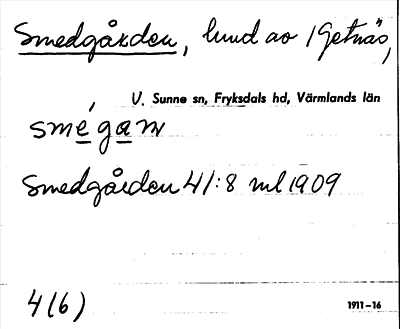 Smedgården, lund av 1 Getnäs,
V. Sunne sn, Fryksdals hd, Värmlands län
smégaɴ
Smedgården 41:8 ml 1909
4(6)
1911–16